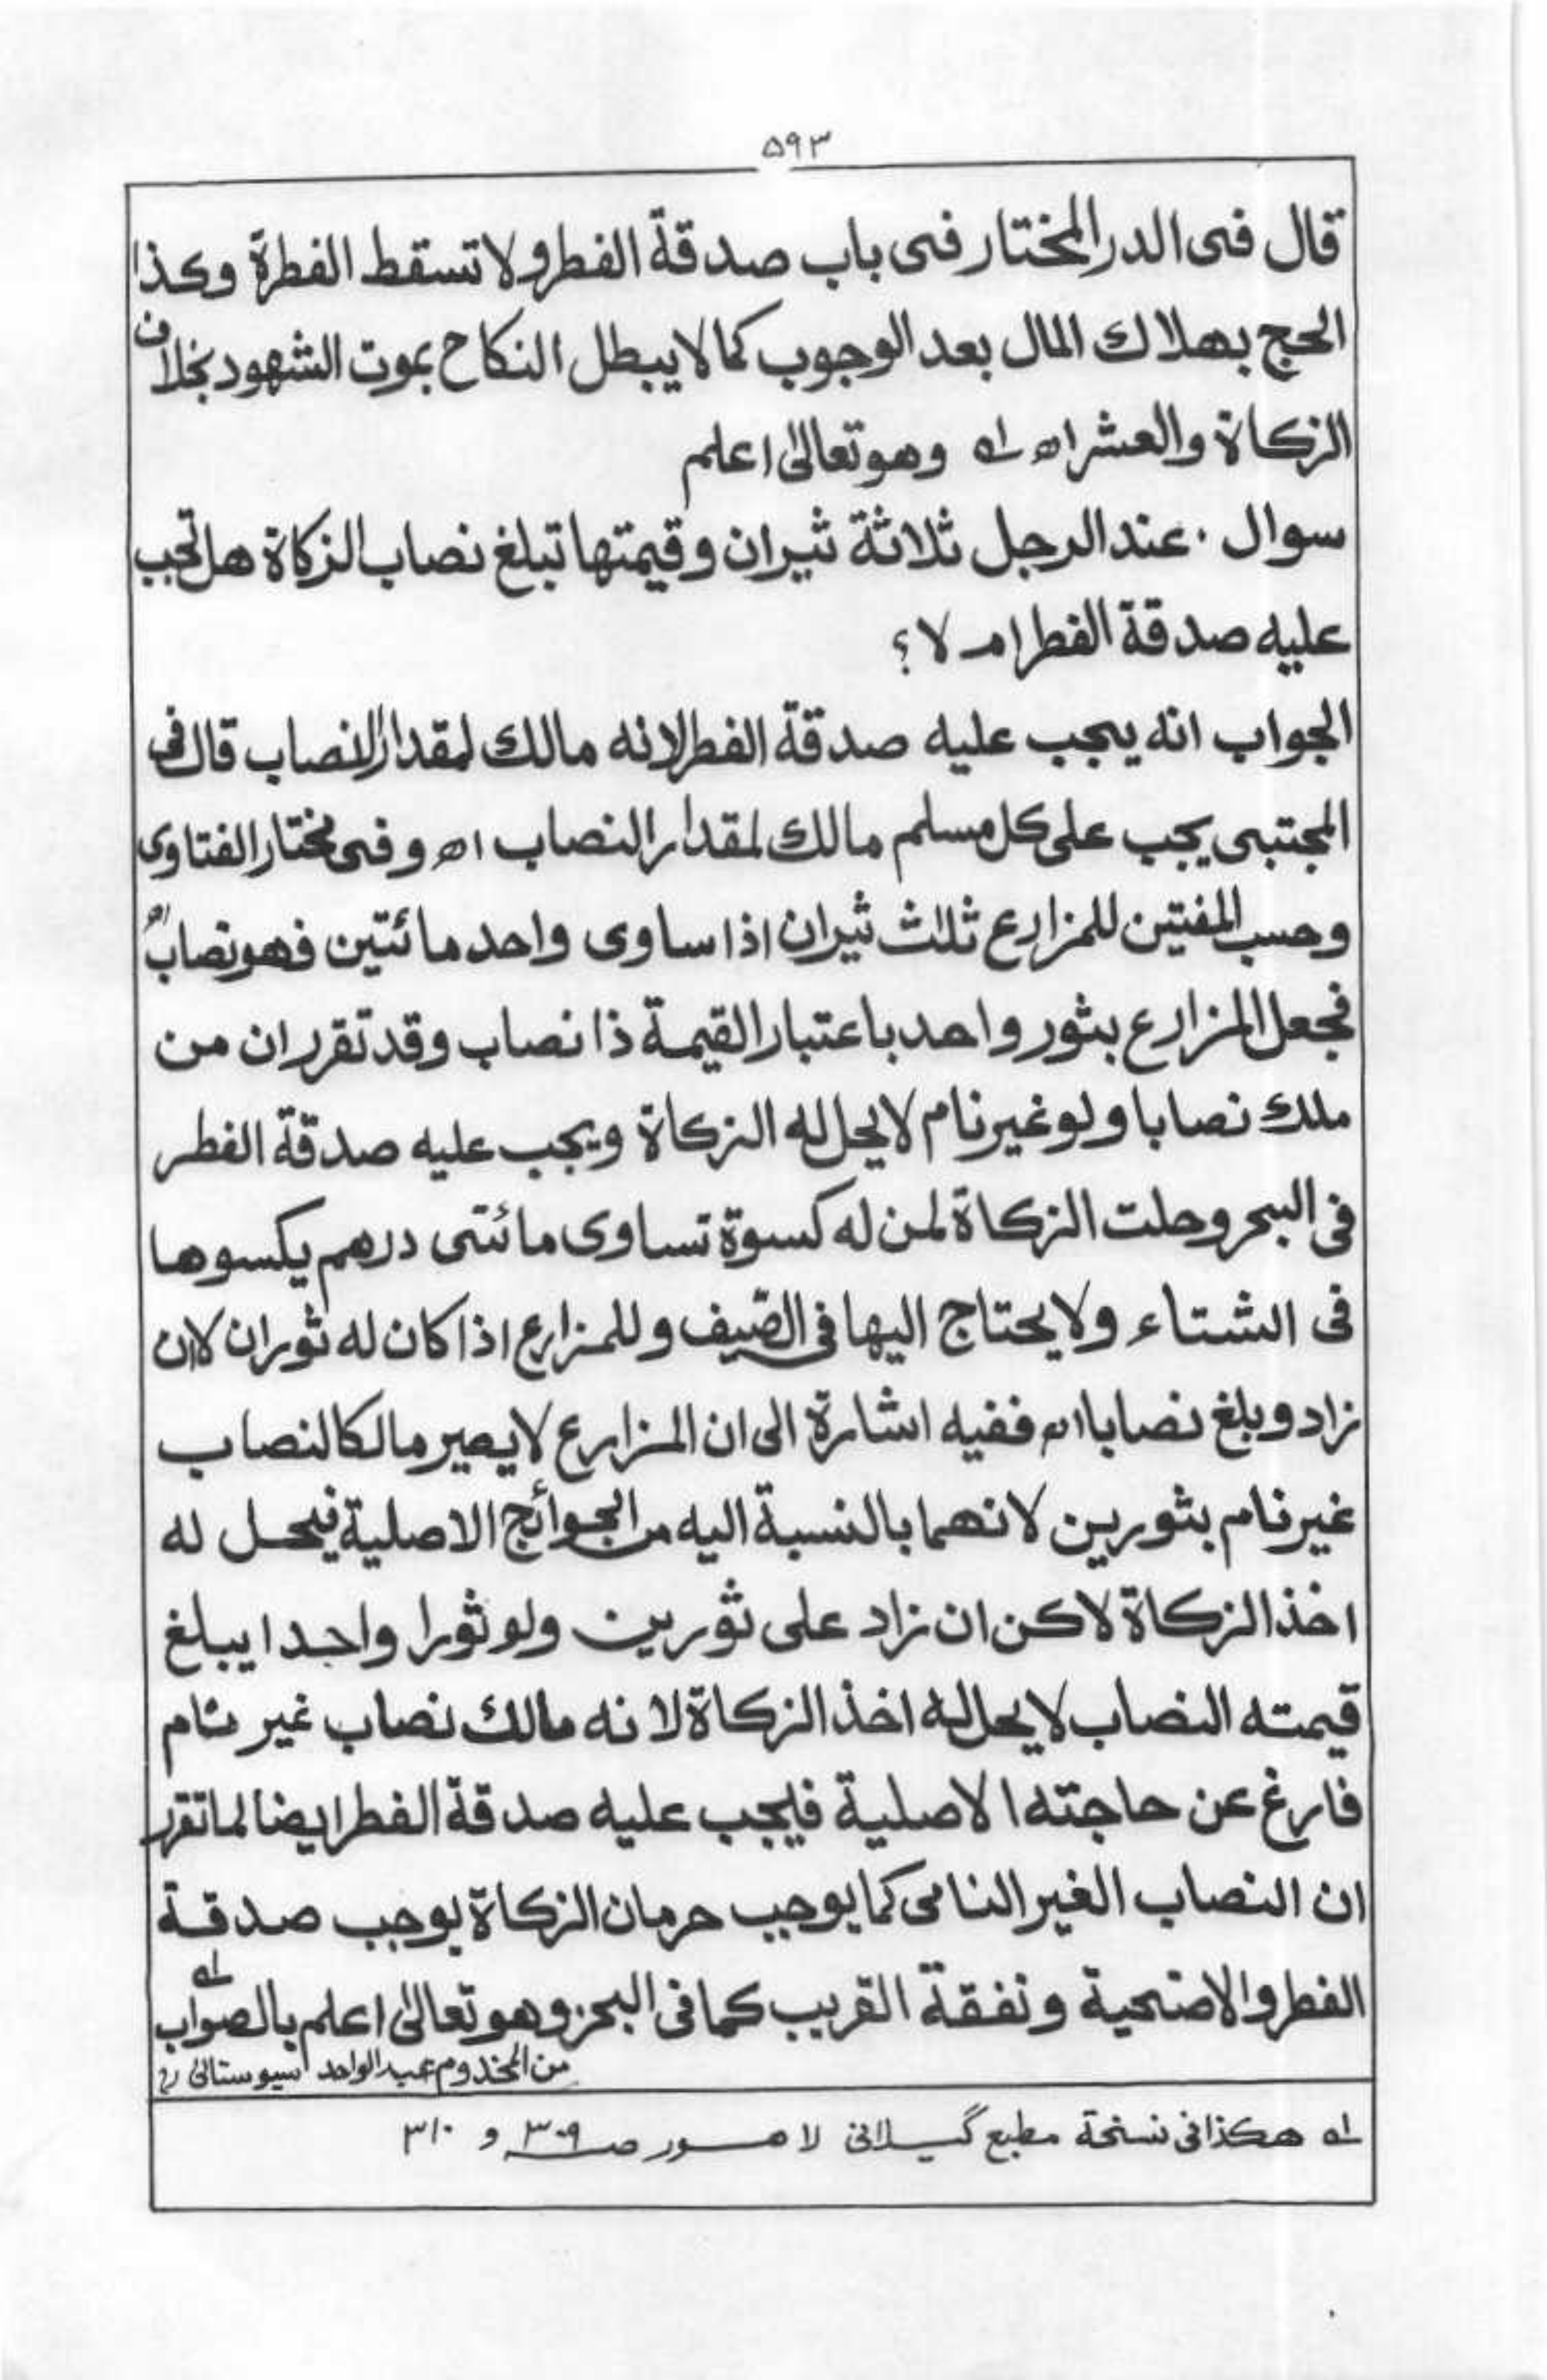 ۵۹۳
قال فى الدر المختار فى باب صدقة الفطر ولا تسقط الفطرة وكذا
الحج بهلاك المال بعد الوجوب كما لا يبطل النكاح بموت الشهود بخلاف
الزكاة والعشر اھ لہ وهو تعالىٰ اعلم
سوال ۰ عند الرجل ثلاثة ثيران وقيمتها تبلغ نصاب الزكاة هل تجب
عليه صدقة الفطر ام لا ؟
الجواب انه يجب عليه صدقة الفطر لانه مالك لمقدار النصاب قال فى
المجتبى يجب على كل مسلم مالك لمقدار النصاب اھ وفى مختار الفتاوى
وحسب المفتين للمزارع ثلث ثيران اذا ساوى واحد مائتين فهو نصاب اھ
فجعل المزارع بثور واحد باعتبار القيمة ذا نصاب وقد تقرر ان من
ملك نصابا ولو غير نام لا يحل له الزكاة ويجب عليه صدقة الفطر
فى البحر وحلت الزكاة لمن له كسوة تساوى مائتى درهم يكسوها
فى الشتاء ولا يحتاج اليها فى الصّيف وللمزارع اذا كان له ثوران لا ان
زاد وبلغ نصابا اھ ففيه اشارة الى ان المزارع لا يصير مالكا لنصاب
غير نام بثورين لانهما بالنسبة اليه من الحوائج الاصلية فيحل له
اخذ الزكاة لاكن ان زاد على ثورين ولو ثورا واحدا يبلغ
قيمته النصاب لا يحل له اخذ الزكاة لانه مالك نصاب غير نام
فارغ عن حاجته الاصلية فيجب عليه صدقة الفطر ايضا لما تقرر
ان النصاب الغير النامى كما يوجب حرمان الزكاة يوجب صدقة
الفطر والاضحية ونفقة القريب كما فى البحر وهو تعالىٰ اعلم بالصواب لہ
من المخدوم عبد الواحد سيوستانى رح
لہ هكذا فى نسخة مطبع گيلانى لاهور صـ ۳۰۹ و ۳۱۰